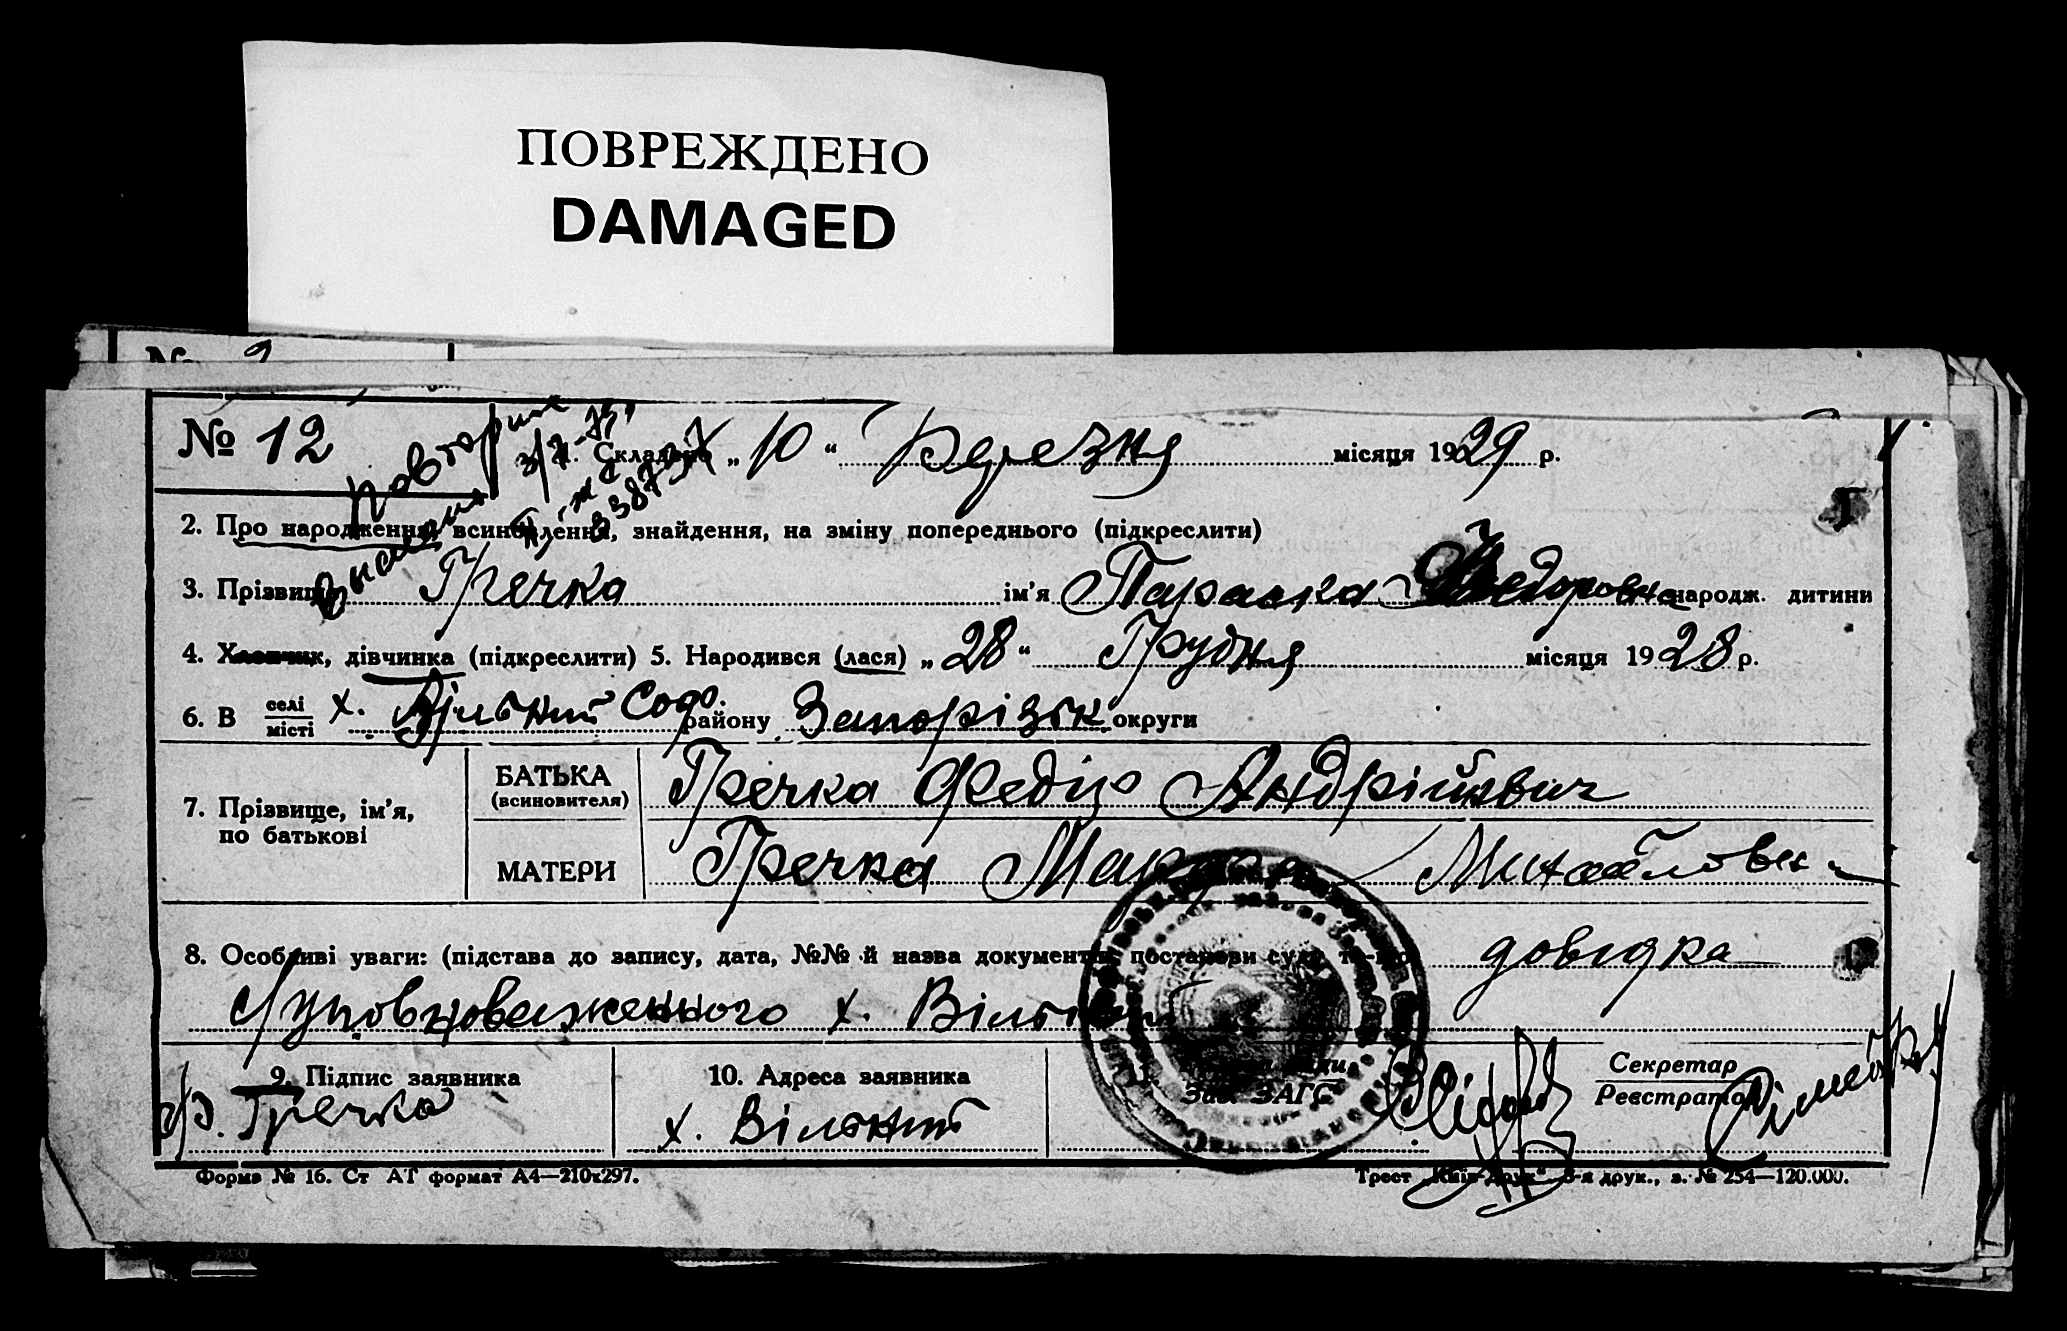 ПОВРЕЖДЕНО
DAMAGED
№ 12
Повторне 3/Х-75
1. Складено „ 10 “ Березня місяця 1929 р.
2. Про народження, всиновлення, знайдення, на зміну попереднього (підкреслити)
3. Прізвище Гречка ім'я Параска Федоровна народж. дитини
4. Хлопчик, дівчинка (підкреслити) 5. Народився (лася) „ 28 “ Грудня місяця 1928 р.
6. В селі місті х. Вільний Соф. району Запорізьк округи
7. Прізвище, ім'я, по батькові
БАТЬКА (всиновителя) Гречка Федір Андрійович
МАТЕРИ Гречка Михайловна
8. Особливі уваги: (підстава до запису, дата, №№ й назва документів, постанови суду то-що) довідка
Уповноваженного х. Вільний
9. Підпис заявника
Гречка
10. Адреса заявника
х. Вільний
Зав. ЗАГС
Секретар
Реєстратор
Форма № 16. Ст АТ формат А4—210х297.
Трест „Київ-Друк“ друк., з. № 254—120.000.